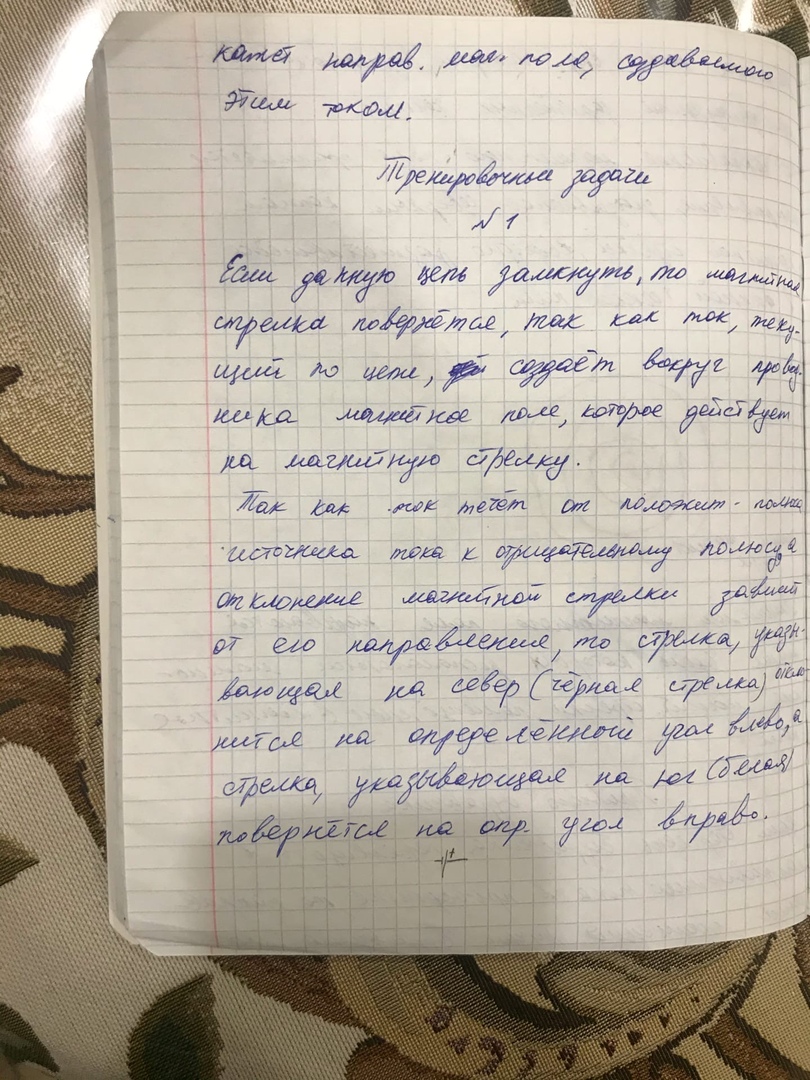 кажет направ. маг. поля, создаваемого
этим током.
Тренировочные задачи
№ 1
Если данную цепь замкнуть, то магнитная
стрелка повернётся, так как ток, теку-
щий по цепи, создаёт вокруг провод-
ника магнитное поле, которое действует
на магнитную стрелку.
Так как ток течёт от положит. полюса
источника тока к отрицательному полюсу, а
отклонение магнитной стрелки зависит
от его направления, то стрелка, указы-
вающая на север (чёрная стрелка) откло-
нится на определённый угол влево, а
стрелка, указывающая на юг (белая)
повернётся на опр. угол вправо.